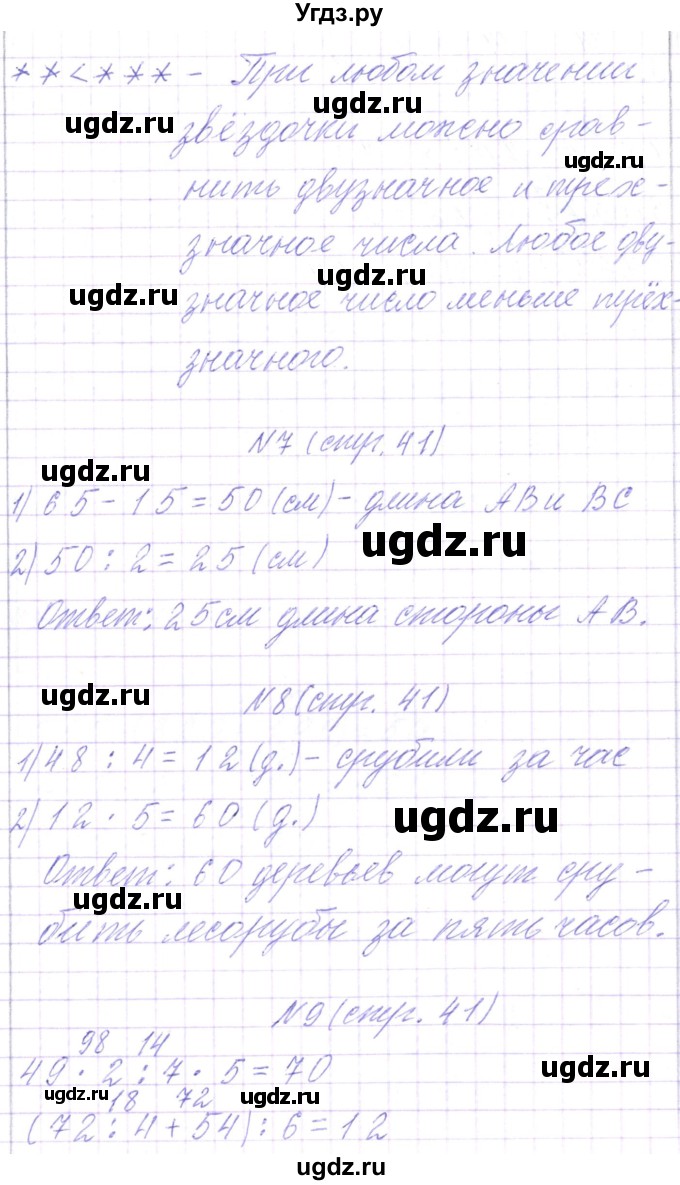 Угдз.ру
* * < * * * - При любом значении
звёздочки можно срав-
нить двузначное и трёх-
значное числа. Любое дву-
значное число меньше трёх-
значного.
N7 (стр. 41)
1) 65 - 15 = 50 (см) - длина AB и BC
2) 50 : 2 = 25 (см)
Ответ: 25 см длина стороны AB.
N8 (стр. 41)
1) 48 : 4 = 12 (д.) - срубили за час
2) 12 · 5 = 60 (д.)
Ответ: 60 деревьев могут сру-
бить лесорубы за пять часов.
N9 (стр. 41)
98 14
49 · 2 : 7 · 5 = 70
18 72
(72 : 4 + 54) : 6 = 12
ugdz.ru
ugdz.ru
ugdz.ru
ugdz.ru
ugdz.ru
ugdz.ru
ugdz.ru
ugdz.ru
ugdz.ru
ugdz.ru
ugdz.ru
ugdz.ru
ugdz.ru
ugdz.ru